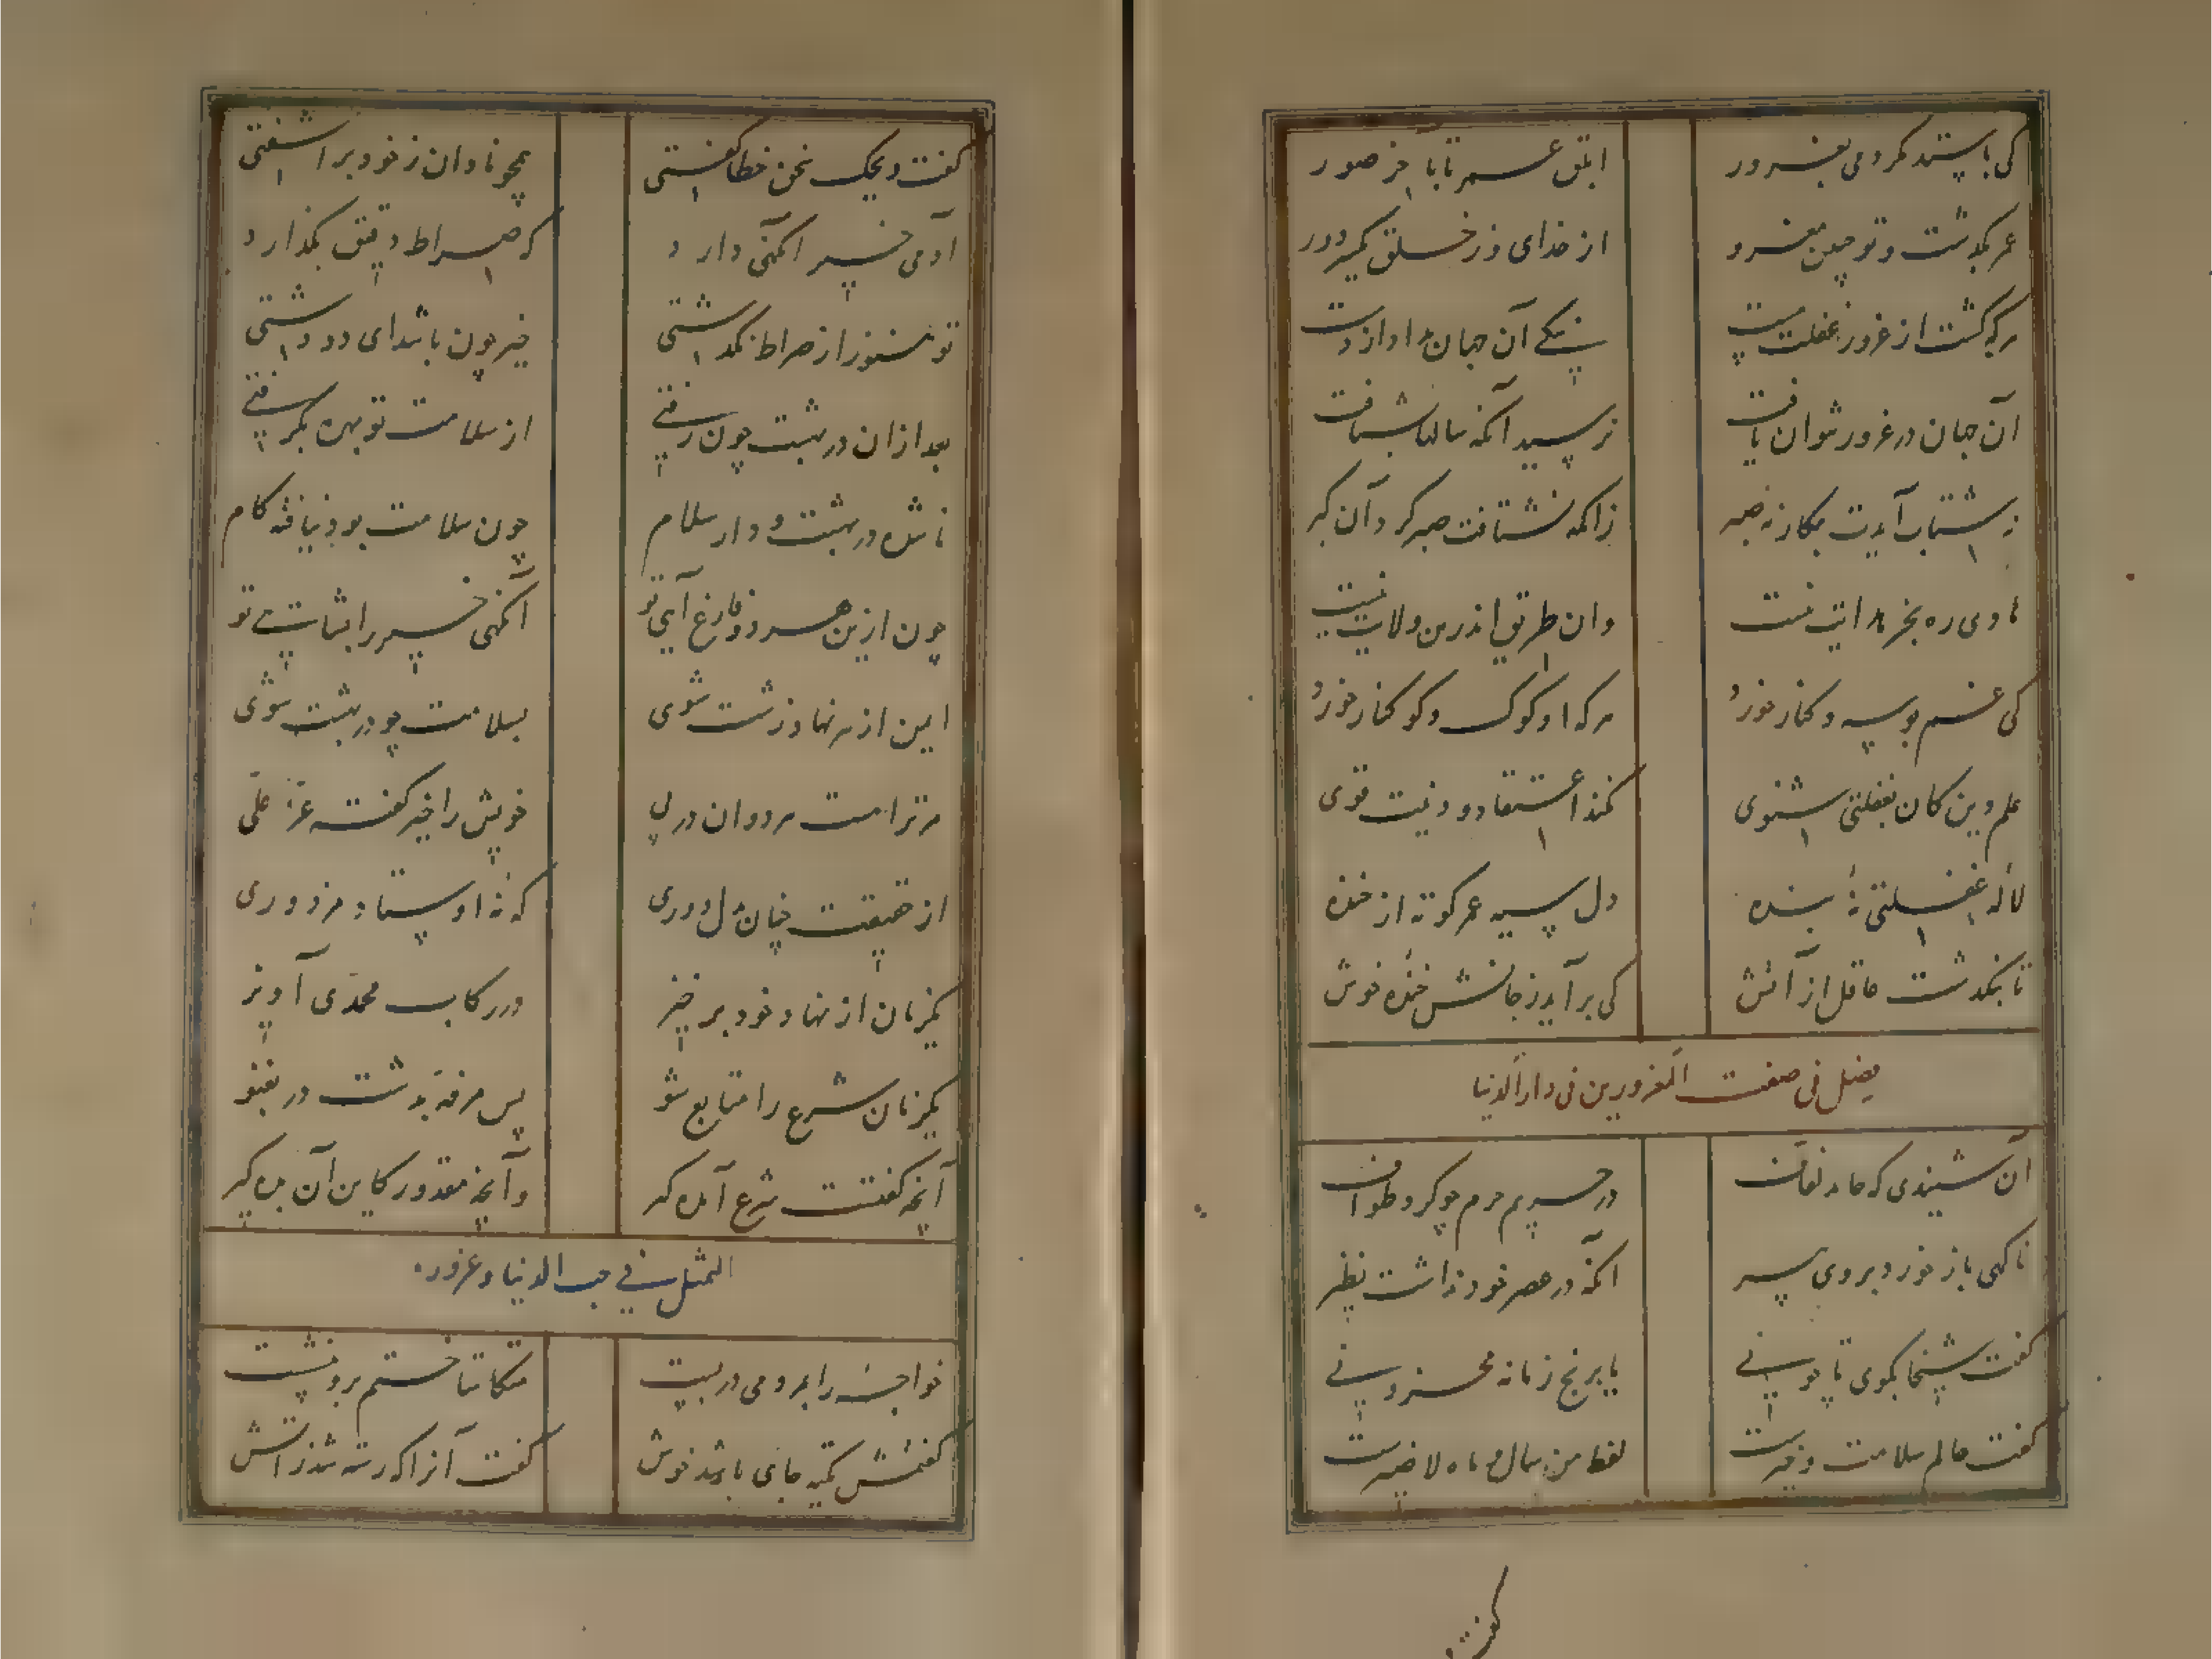 کی بایستد مکر دمی بغرور ابلق عمر تا با خر صور
عمر بگذشت و تو چنین مغرور از خدای و ز خلق گیر دور
هرکه گشت از غرور غفلت مست نیکی آن جهان داد از دست
آن جهان در غرور نتوان یافت نرسید آنکه سالها بشتافت
نه شتاب آیدت بکار نه صبر زانکه نشتافت صبر کرد آن گبر
هادی ره بجز هدایت نیست وان طریق اندرین ولایت نیست
کی غم بوسه و کنار خورد هرکه او کوک و کوکنار خورد
علم دین کان بغفلتی شنوی کند اعتقاد و دنیت قوی
لاله غفلتی نه بنده دل سیه عمر کوته از خنده
تا بنگذشت غافل از آتش کی برآید ز جانش خنده خوش
فصل فی صفت المغرورین فی دار الدنیا
آن شنیدی که حامد لفاف در حریم حرم چو کرد طواف
ناگهی باز خورد بر وی پیر آنکه در عصر خود نداشت نظیر
گفت شیخا بگوی تا چونی یا برنج زمانه محزونی
گفت حالم سلامت و خیرست لفظ من سال و ماه لا ضیرست
گفت
گفت ویحک سخن خطا گفتی همچو نادان ز خود برآشفتی
آدمی خیر آنگهی دارد که صراط دقیق بگذارد
تو هنوز از صراط نگذشتی خیر چون باشد ای دو دشتی
بعد از آن در بهشت چون رفتی از سلامت تو بهره بگرفتی
ناشده در بهشت و دار سلام چون سلامت بود نیافته کام
چون ازین هر دو فارغ آیی تو آنگهی خیر را بشایی تو
ایمن از هر نهاد زشت شوی بسلامت چو در بهشت شوی
مر ترا مست مرد وان در پی خویش را خیر گفته عز علی
از حقیقت چنان بدل دوری که نه اوستاد و مزدوری
یکزمان از نهاد خود برخیز در رکاب محمدی آویز
یکزمان شرع را متابع شو پس مرفه بدشت در بغنو
آنچه گفتست شرع آمده گیر وآنچه مقدور کاین آن بده گیر
المثل فی حب الدنیا و غروره
خواجه را بمرد می در بیت متکا ساختم برو ننشست
گفتمش تکیه جای باشد خوش گفت آنرا که رسته شد ز آتش